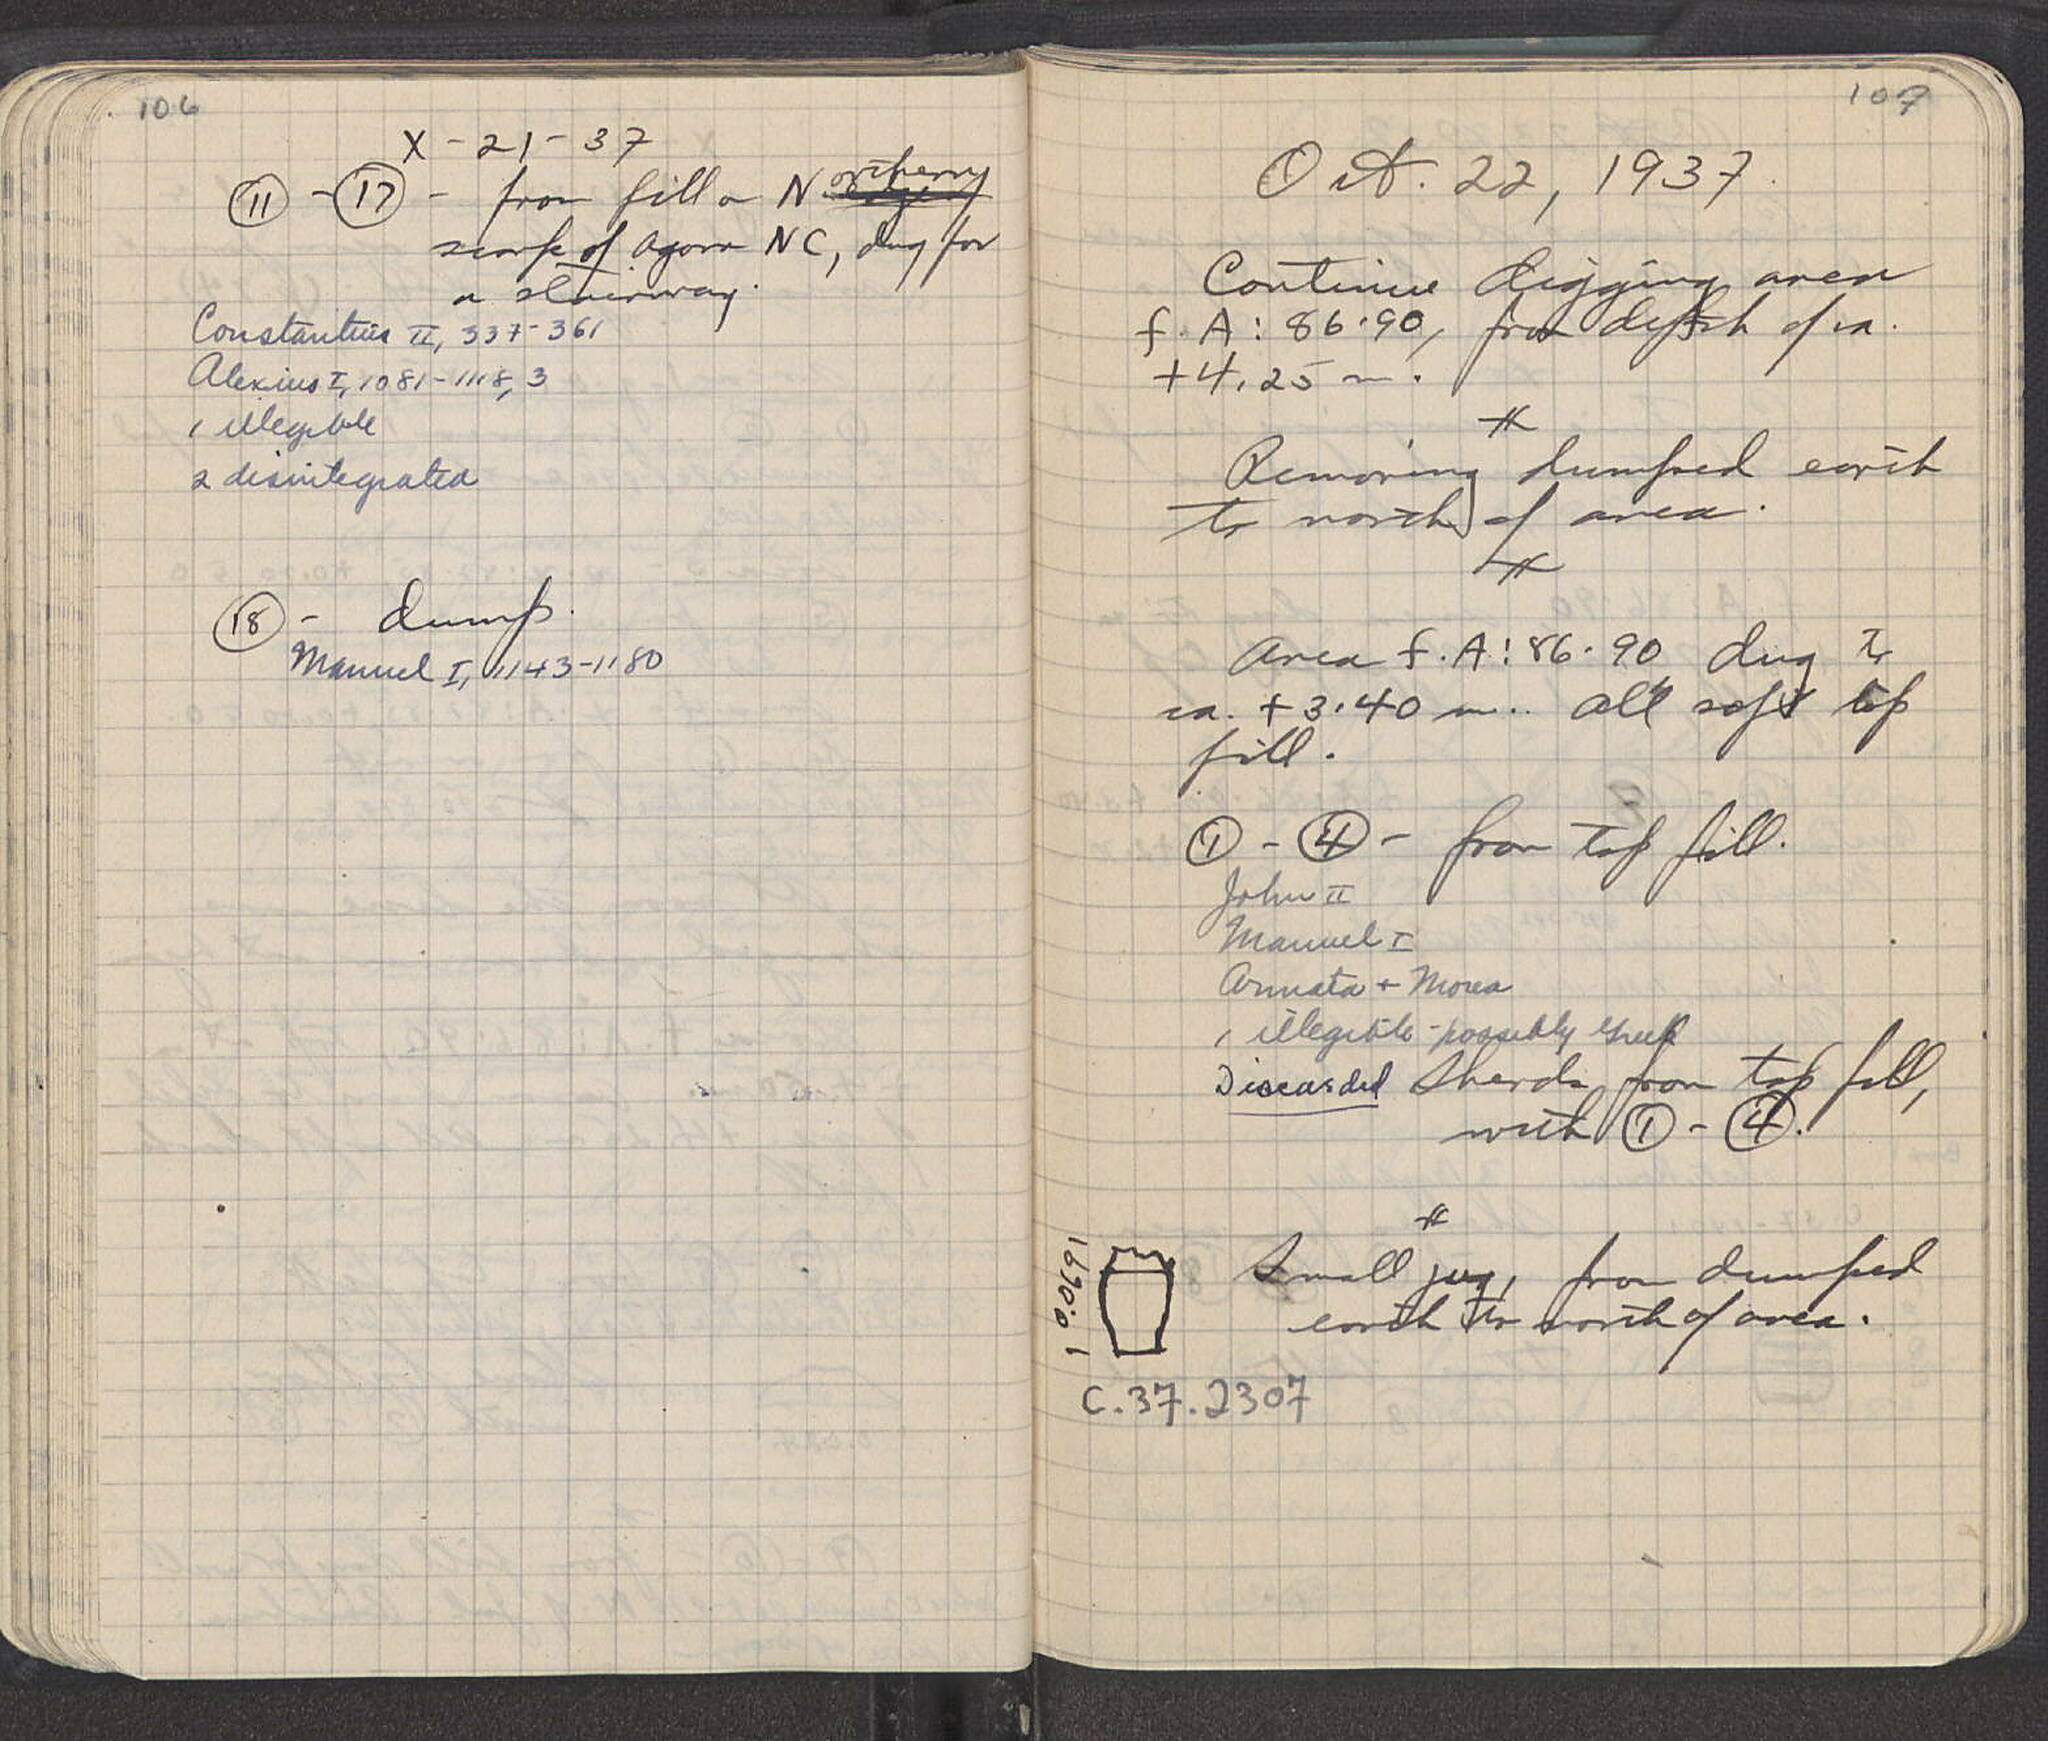 106
X - 21 - 37
⑪ - ⑰ - from fill on Northern
scarp of Agora NC, dug for
a stairway.
Constantius II, 337-361
Alexius I, 1081-1118, 3
1 illegible
2 disintegrated
⑱ - dump.
Manuel I, 1143-1180
107
Oct. 22, 1937.
Continue digging area
f. A: 86·90, from depth of ca.
+4.25 m.
Removing dumped earth
to north of area.
Area f. A: 86·90 dug to
ca. +3.40 m.. All soft top
fill.
① - ④ - from top fill.
John II
Manuel I
Armata + Morea
1 illegible - possibly Greek
Discarded Sherds from top fill,
with ① - ④.
0.0691
Small jug, from dumped
earth to north of area.
C.37.2307